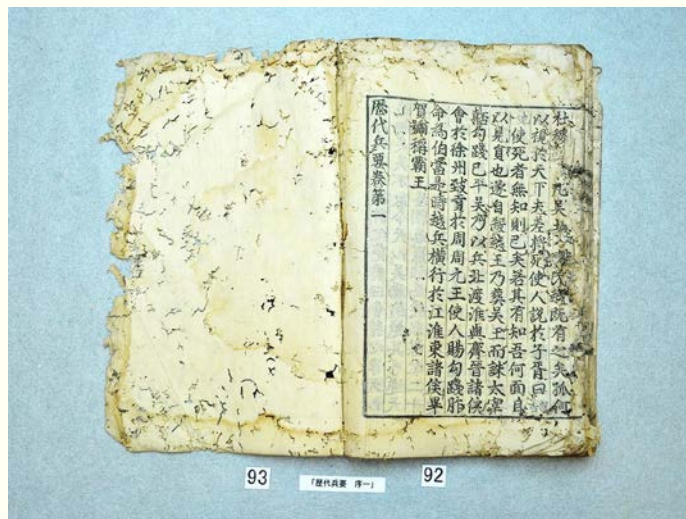 以視於天下夫差將死使人說於子胥曰
使死者無知則已矣若其有知吾何面目
以見員也遂自殺越王乃葬吳王而誅太宰
嚭勾踐已平吳乃以兵北渡淮與齊晉諸侯
會於徐州致貢於周周元王使人賜勾踐胙
命爲伯當是時越兵橫行於江淮東諸侯畢
賀號稱霸王
歷代兵要卷第一
93
「歴代兵要 序一」
92